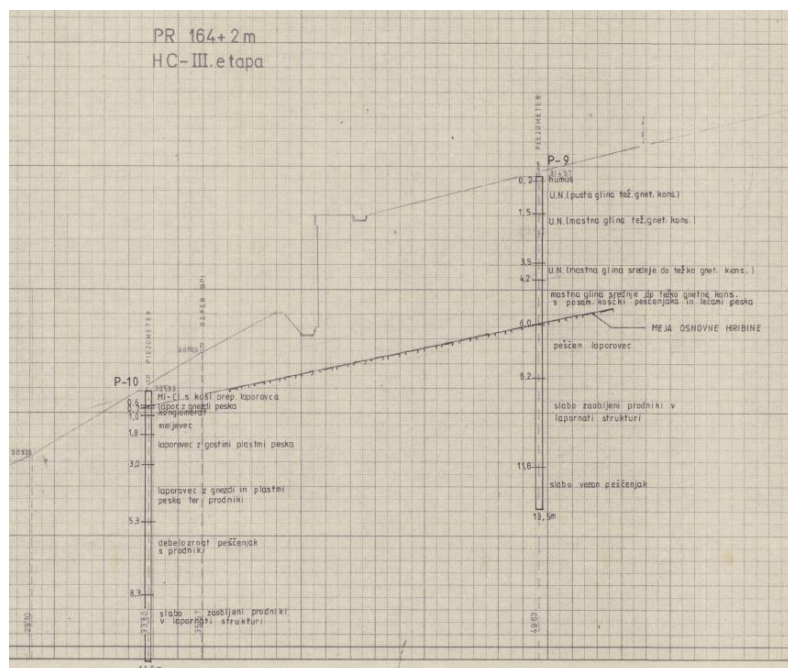 PR 164+2m
HC-III. etapa
PIEZOMETER
P-9
0,2
humus
U.N.(pusta glina tež. gnet. kons.)
1,5
U.N.(mastna glina tež. gnet. kons.)
3,5
U.N.(mastna glina srednje do težko gnet. kons.)
4,2
mastna glina srednje do težko gnetne kons.
s posam. koščki peščenjaka in lečami peska
6,0
MEJA OSNOVNE HRIBINE
peščen laporovec
8,2
slabo zaobljeni prodniki v
lapornati strukturi
11,8
slabo vezan peščenjak
13,5m
PIEZOMETER
REPER
P-10
lapor z gnezdi peska
konglomerat
meljevec
1,8
laporovec z gostimi plastmi peska
3,0
laporovec z gnezdi in plastmi
peska ter prodniki
5,3
debelozrnat peščenjak
s prodniki
8,3
slabo zaobljeni prodniki
v lapornati strukturi